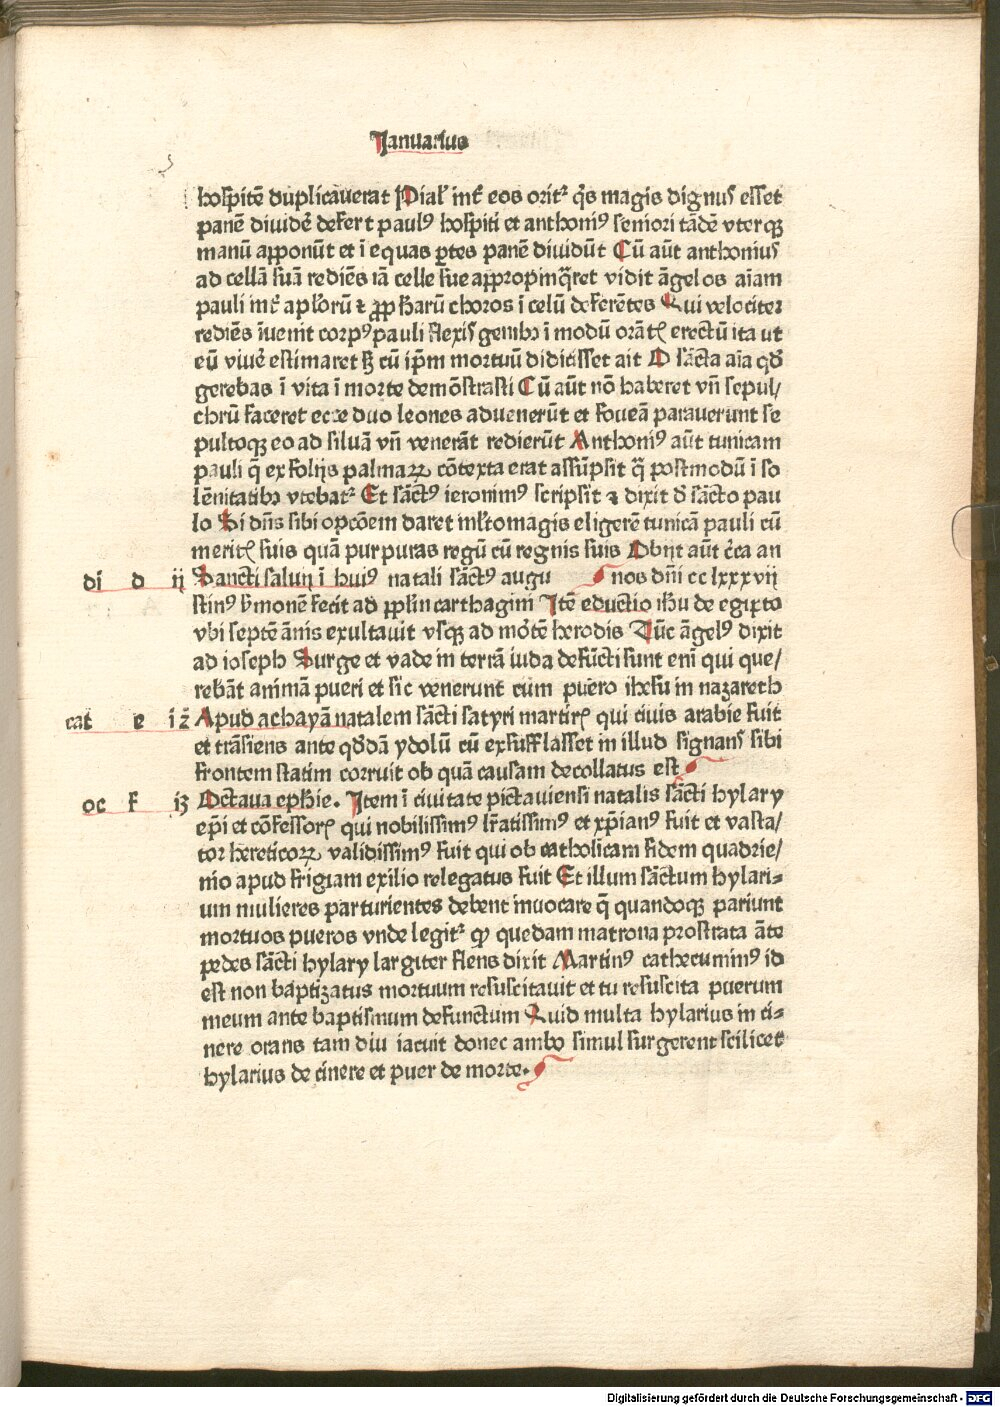 Januarius
hospitē duplicauerat Pial' int' eos orit᷒ q̄s magis dignus esset
panē dividē defert paulꝰ hospiti et anthoniꝰ seniori tādē vterqꝫ
manū apponūt et ī equas ꝑtes panē dividūt Cū aūt anthonius
ad cellā suā rediēs iā celle sue appropinq̄ret vidit āgelos aīam
pauli int' apl'orū ⁊ ꝓph'arū choros ī celū deferētes Qui velociter
rediēs īvenit corpꝰ pauli flexis genibꝰ ī modū orātꝭ erectū ita ut
eū viuē estimaret sꝫ cū ip̄m mortuū didicisset ait O sācta aīa qd̄
gerebas ī vita ī morte demōstrasti Cū aūt nō haberet vn̄ sepul/
chrū faceret ecce duo leones aduenerūt et foueā parauerunt se
pultoqꝫ eo ad siluā vn̄ venerāt redierūt Anthoniꝰ aūt tunicam
pauli q̄ ex folijs palmaꝝ cōtexta erat assūpsit q̄ postmodū ī so
lēnitatibꝰ vtebat᷒ Et sāctꝰ ieronimꝰ scripsit ⁊ dixit d' sācto pau
lo Si dn̄s sibi opcōem daret ml'to magis eligerē tunicā pauli cū
meritꝭ suis quā purpuras regū cū regnis suis Obijt aūt c̄ca an
di d ij Sancti saluij ī huiꝰ natali sāctꝰ augu nos dn̄i cclxxxvij
stinꝰ s̄monē fecit ad pp̄lm carthagini Itē eductio ih̄u de egipto
vbi septē ānis exultauit vsqꝫ ad mōtē herodis Tūc āgelꝰ dixit
ad ioseph Surge et vade in terrā iuda defūcti sunt enī qui que/
rebāt animā pueri et sic venerunt cum puero ihesu in nazareth
cat e iz Apud achayā natalem sācti satyri martirꝭ qui ciuis arabie fuit
et trāsiens ante qd̄dā ydolū cū exsufflasset in illud signans sibi
frontem statim corruit ob quā causam decollatus est
oc f iꝫ Octaua eph'ie. Item ī ciuitate pictauiensi natalis sācti hylary
ep̄i et cōfessorꝭ qui nobilissimꝰ l'ratissimꝰ et xp̄ianꝰ fuit et vasta/
tor hereticoꝝ validissimꝰ fuit qui ob catholicam fidem quadrie/
nio apud frigiam exilio relegatus fuit Et illum sāctum hylari=
um mulieres parturientes debent inuocare q̄ quandoqꝫ pariunt
mortuos pueros vnde legit᷒ ꝙ quedam matrona prostrata āte
pedes sācti hylary largiter flens dixit Martinꝰ cathecuminꝰ id
est non baptizatus mortuum resuscitauit et tu resuscita puerum
meum ante baptismum defunctum Quid multa hylarius in ci=
nere orans tam diu iacuit donec ambo simul surgerent scilicet
hylarius de cinere et puer de morte.
Digitalisierung gefördert durch die Deutsche Forschungsgemeinschaft - DFG